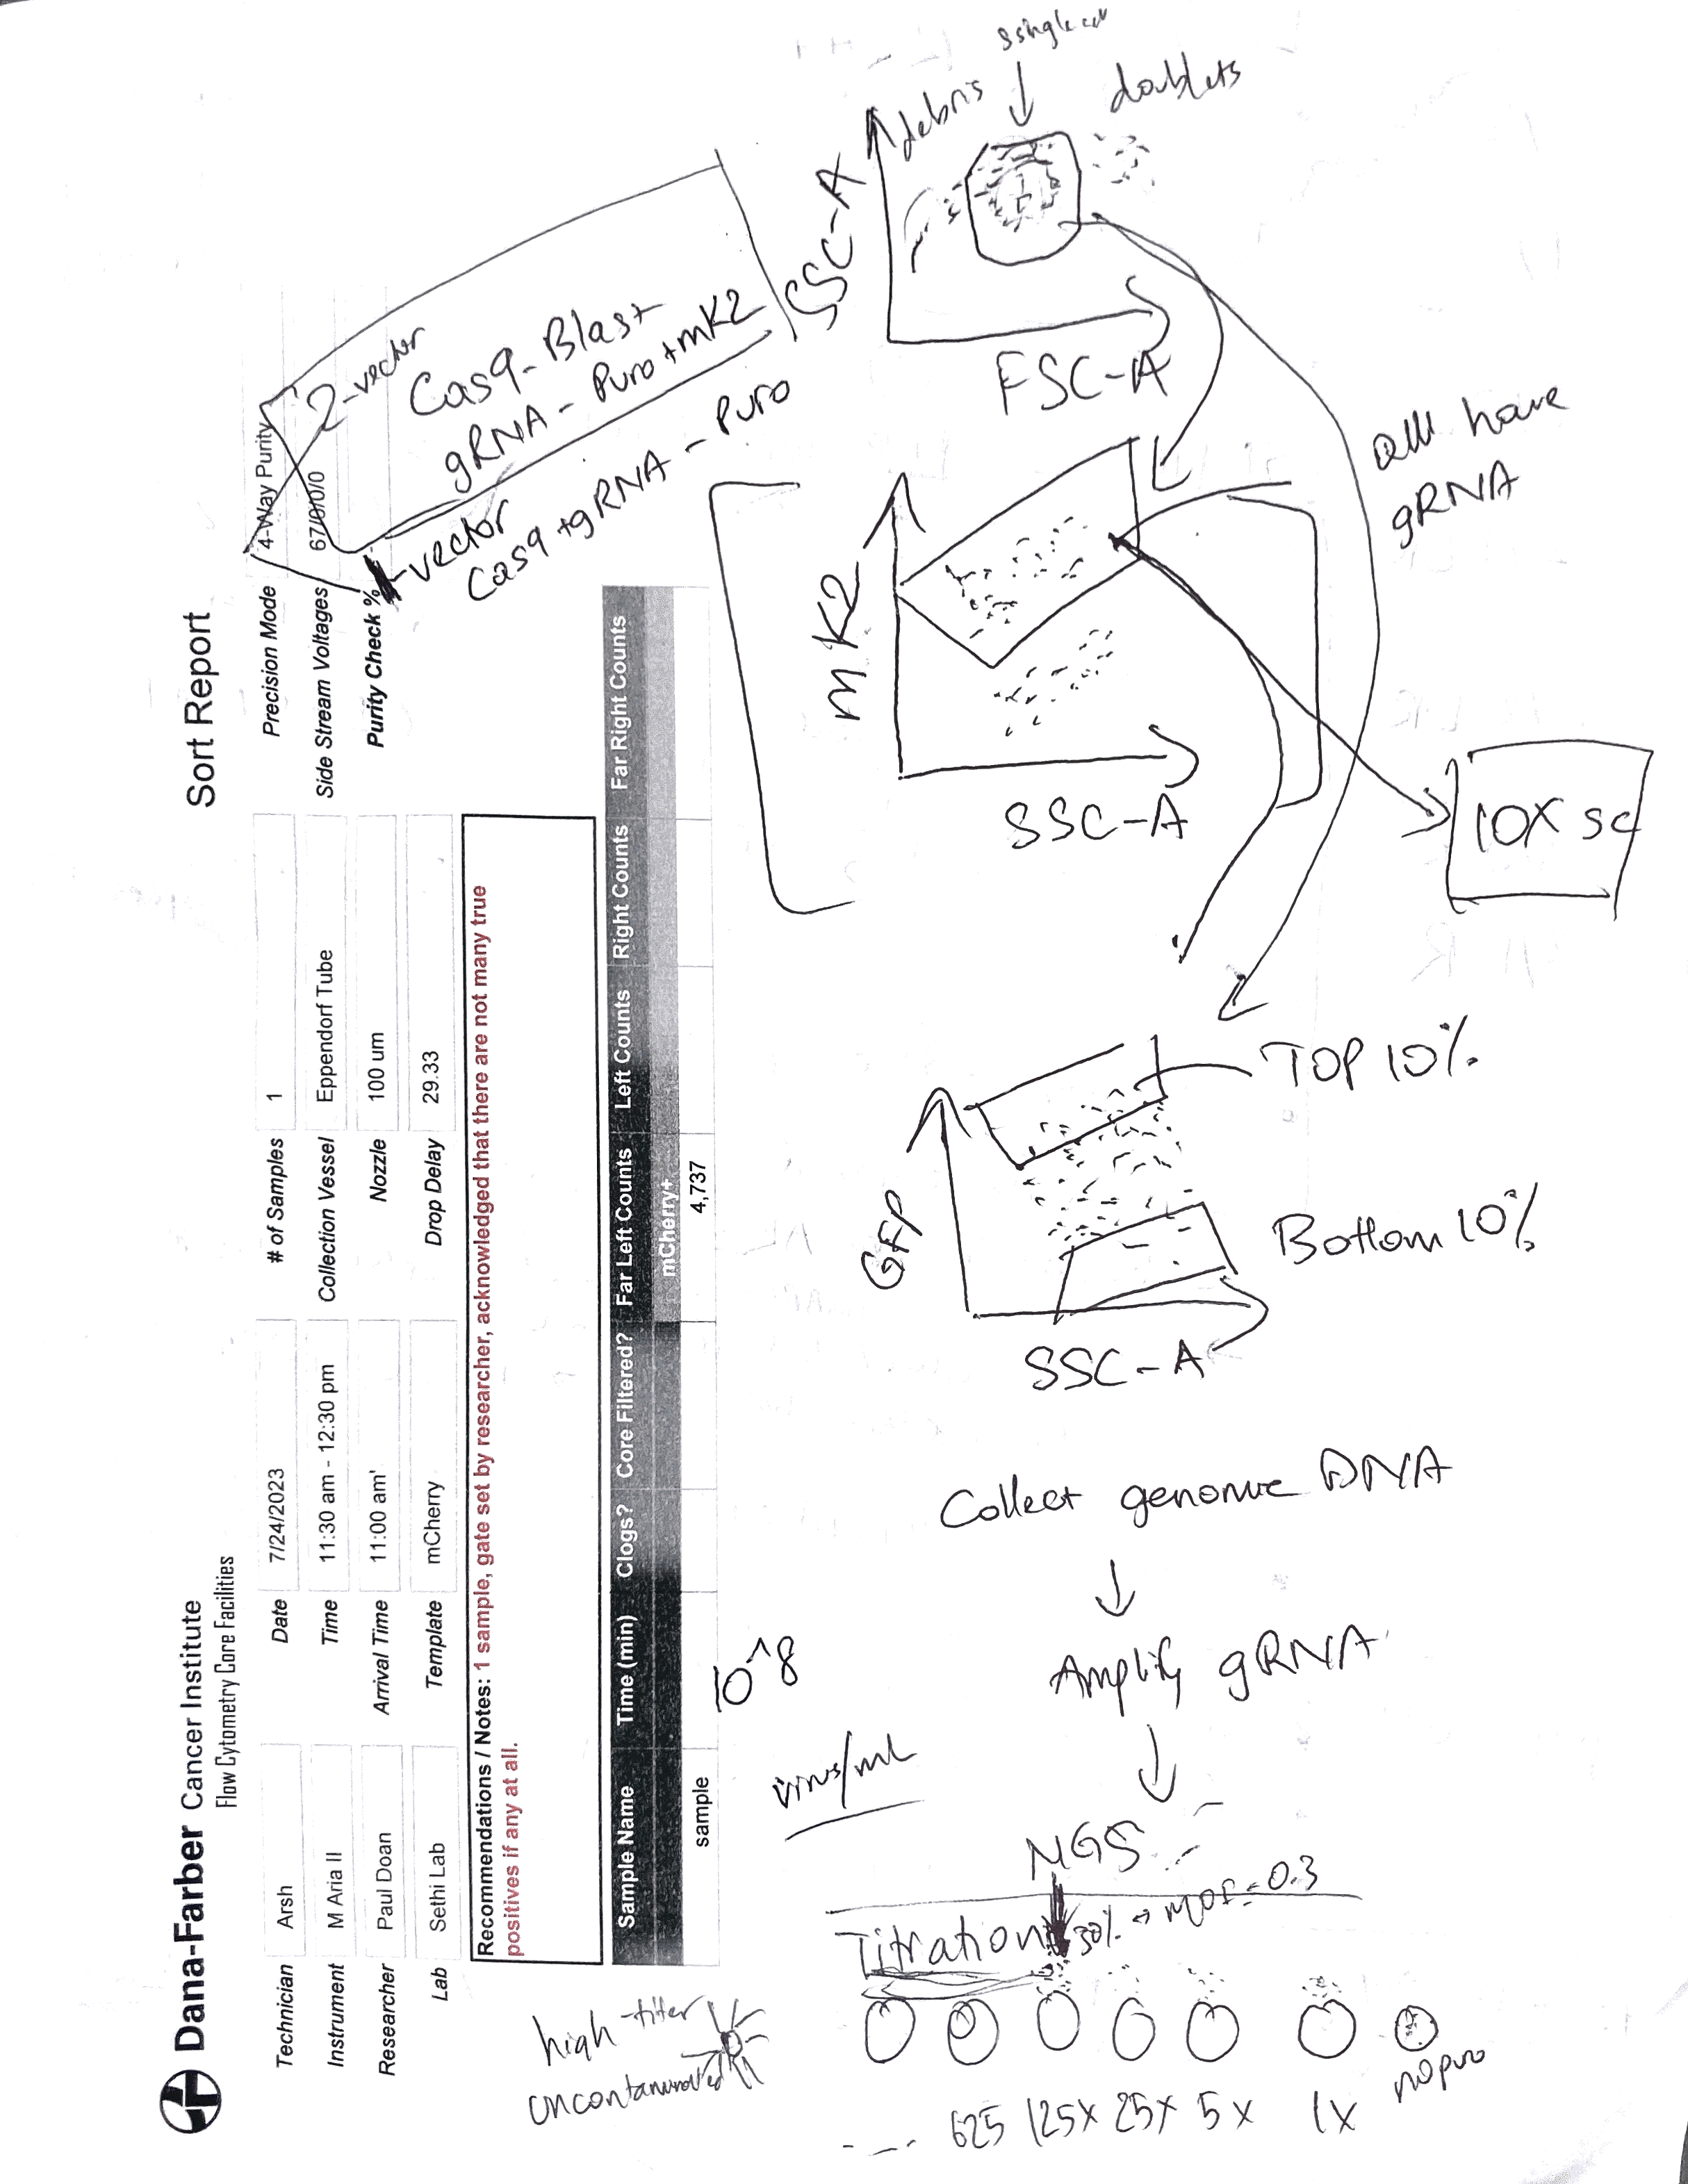 Dana-Farber Cancer Institute
Flow Cytometry Core Facilities
Sort Report
Technician Arsh
Date 7/24/2023
# of Samples 1
Precision Mode 4-Way Purity
Instrument M Aria II
Time 11:30 am - 12:30 pm
Collection Vessel Eppendorf Tube
Side Stream Voltages 67/0/0/0
Researcher Paul Doan
Arrival Time 11:00 am'
Nozzle 100 um
Purity Check %
Lab Sethi Lab
Template mCherry
Drop Delay 29.33
Recommendations / Notes: 1 sample, gate set by researcher, acknowledged that there are not many true
positives if any at all.
Sample Name Time (min) Clogs? Core Filtered? Far Left Counts Left Counts Right Counts Far Right Counts
mCherry+
sample 4,737
2-vector
Cas9-Blast
gRNA - Puro + mK2
1-vector
Cas9 + gRNA - Puro
debris
doublets
SSC-A
FSC-A
all have
gRNA
mK2
SSC-A
10X sc
TOP 10%
GFP
Bottom 10%
SSC-A
Collect genomic DNA
Amplify gRNA
NGS
10^8
virus/mL
Titration
30% → MOI = 0.3
high-titer
uncontaminated
625 125x 25x 5x 1x
no puro